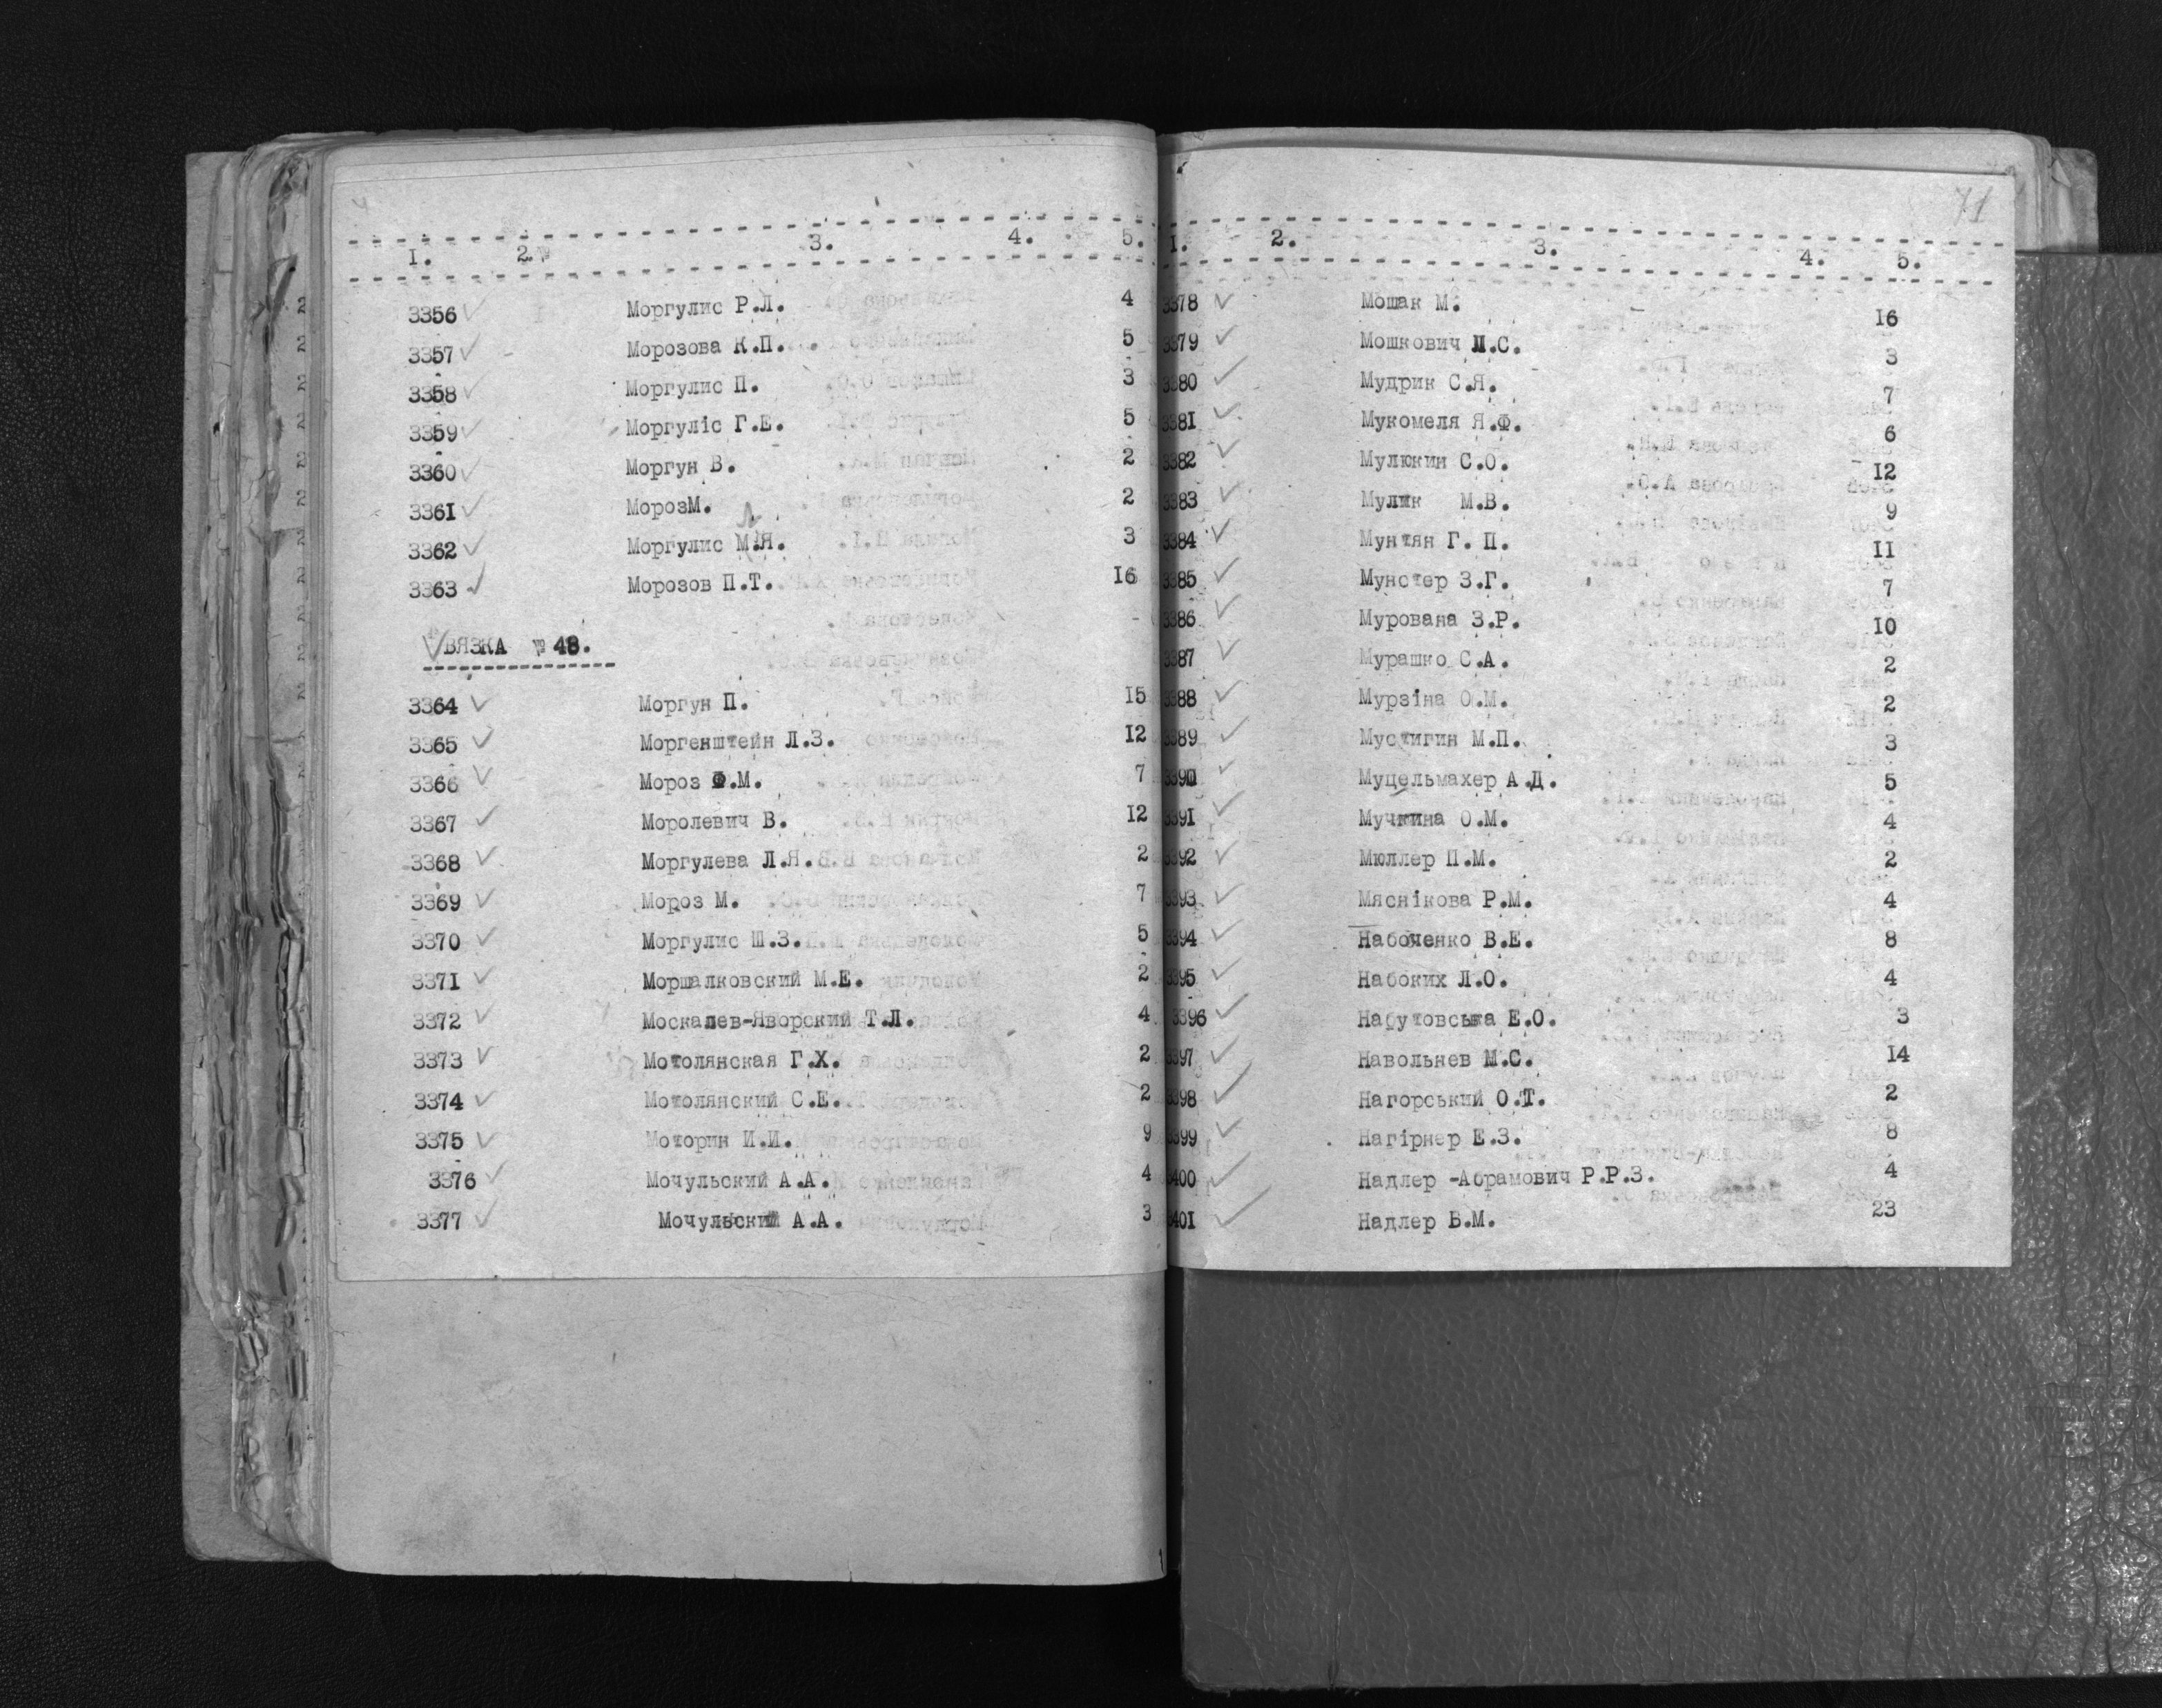 1. 2. 3. 4. 5.
3356 Моргулис Р.Л. 4
3357 Морозова К.П. 5
3358 Моргулис П. 3
3359 Моргуліс Г.Е. 5
3360 Моргун В. 2
3361 МорозМ. 2
3362 Моргулис М.Я. 3
3363 Морозов П.Т. 16
ВЯЗКА № 48.
3364 Моргун П. 15
3365 Моргенштейн Л.З. 12
3366 Мороз Ф.М. 7
3367 Моролевич В. 12
3368 Моргулева Л.Я. 2
3369 Мороз М. 7
3370 Моргулис Ш.З. 5
3371 Моршалковский М.Е. 2
3372 Москалев-Яворский Т.Л. 4
3373 Мотолянская Г.Х. 2
3374 Мотолянский С.Е. 2
3375 Моторин И.И. 9
3376 Мочульский А.А. 4
3377 Мочульский А.А. 3
71
1. 2. 3. 4. 5.
3378 Мошак М. 16
3379 Мошкович Л.С. 3
3380 Мудрик С.Я. 7
3381 Мукомеля Я.Ф. 6
3382 Мулюкин С.О. 12
3383 Мулик М.В. 9
3384 Мунтян Г. П. 11
3385 Мунстер З.Г. 7
3386 Мурована З.Р. 10
3387 Мурашко С.А. 2
3388 Мурзіна О.М. 2
3389 Мустигин М.П. 3
3390 Муцельмахер А.Д. 5
3391 Мучкина О.М. 4
3392 Мюллер П.М. 2
3393 Мяснікова Р.М. 4
3394 Набоченко В.Е. 8
3395 Набоких Л.О. 4
3396 Набутовська Е.О. 3
3397 Навольнев М.С. 14
3398 Нагорський О.Т. 2
3399 Нагірнер Е.З. 8
3400 Надлер -Абрамович Р.Р.З. 4
3401 Надлер В.М. 23